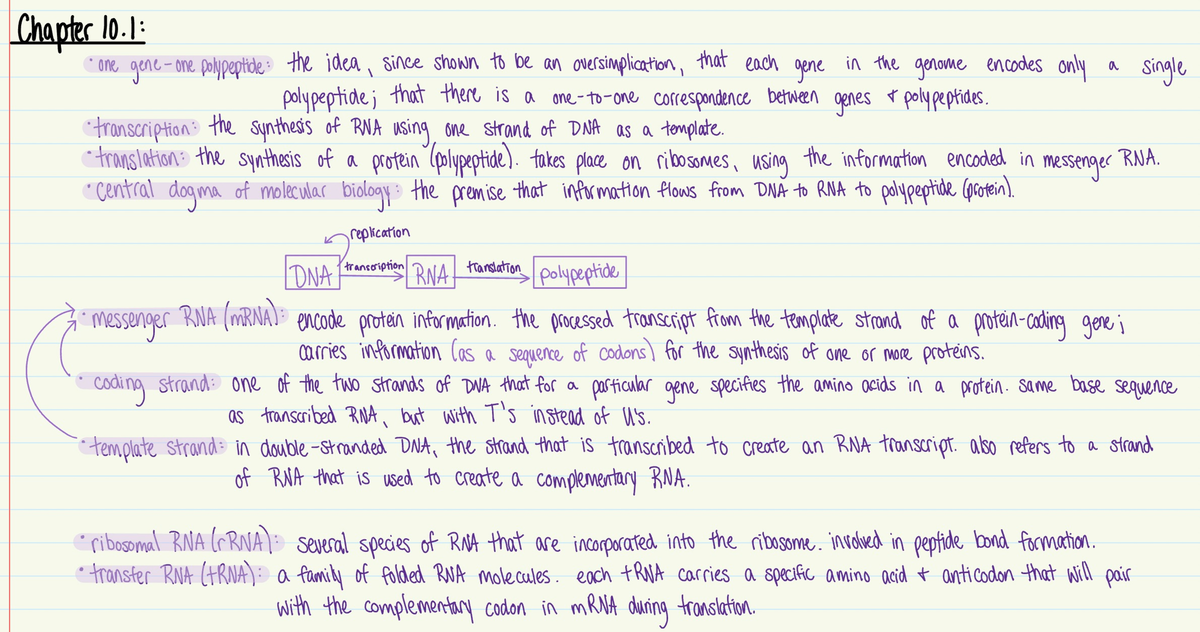 Chapter 10.1:
• one gene-one polypeptide: the idea, since shown to be an oversimplication, that each gene in the genome encodes only a single
polypeptide; that there is a one-to-one correspondence between genes & polypeptides.
• transcription: the synthesis of RNA using one strand of DNA as a template.
• translation: the synthesis of a protein (polypeptide). takes place on ribosomes, using the information encoded in messenger RNA.
• central dogma of molecular biology: the premise that information flows from DNA to RNA to polypeptide (protein).
replication
DNA transcription RNA translation polypeptide
• messenger RNA (mRNA): encode protein information. the processed transcript from the template strand of a protein-coding gene;
carries information (as a sequence of codons) for the synthesis of one or more proteins.
• coding strand: one of the two strands of DNA that for a particular gene specifies the amino acids in a protein. same base sequence
as transcribed RNA, but with T's instead of U's.
• template strand: in double-stranded DNA, the strand that is transcribed to create an RNA transcript. also refers to a strand
of RNA that is used to create a complementary RNA.
• ribosomal RNA (rRNA): several species of RNA that are incorporated into the ribosome. involved in peptide bond formation.
• transfer RNA (tRNA): a family of folded RNA molecules. each tRNA carries a specific amino acid & anticodon that will pair
with the complementary codon in mRNA during translation.